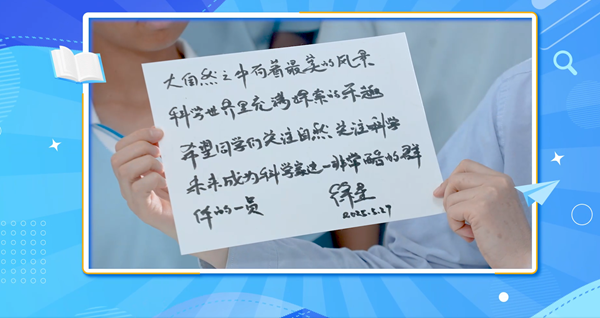 大自然之中有着最美的风景
科学世界里充满探索的乐趣
希望同学们关注自然 关注科学
未来成为科学家这一非常酷的群
体的一员 徐星
2025.5.27